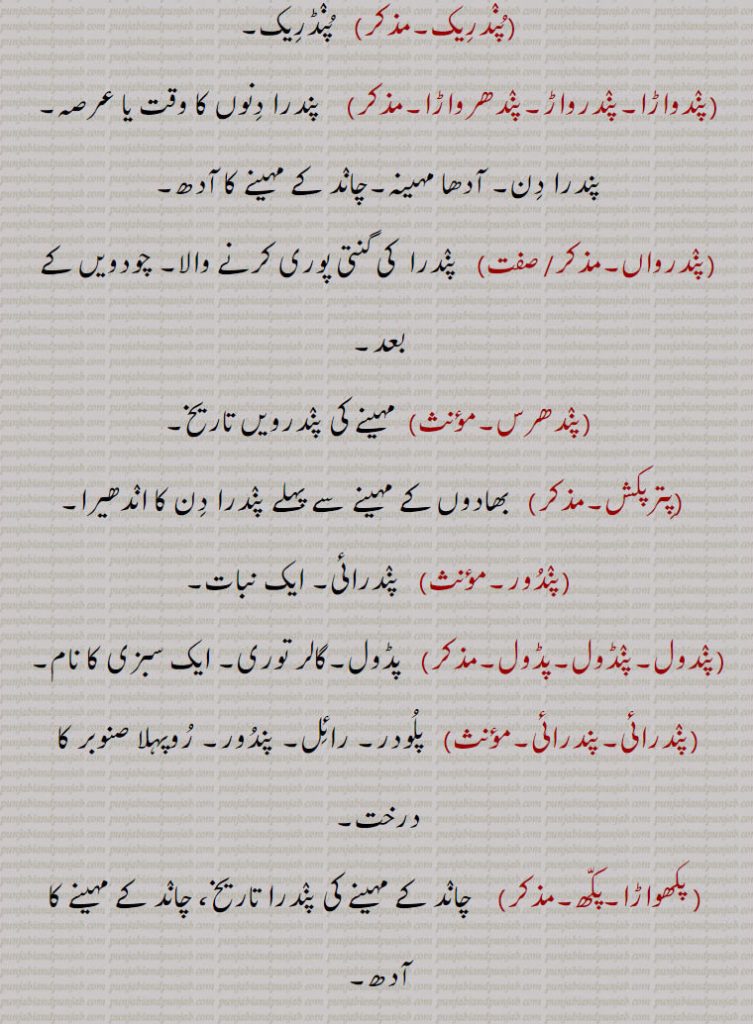 (پُنْدرِیک۔مذکر) پُنْڈرِیک۔
(پنْدواڑا۔پنْدرواڑ۔پنْدھرواڑا۔مذکر) پندرا دِنوں کا وقت یا عرصہ۔
پندرا دِن۔ آدھا مہینہ۔چانْد کے مہینے کا آدھ۔
(پنْدرواں۔مذکر/صفت) پنْدرا کی گنتی پوری کرنے والا۔ چودویں کے
بعد۔
(پنْدھرس۔مؤنث) مہینے کی پنْدرویں تاریخ۔
(پِترپکش۔مذکر) بھادوں کے مہینے سے پہلے پنْدرا دِن کا انْدھیرا۔
(پنْدُور۔مؤنث) پنْدرائی۔ ایک نبات۔
(پنْدول۔پنْڈول۔پڈول۔مذکر) پڈول۔گالر توری۔ ایک سبزی کا نام۔
(پنْدرائی۔پندرائی۔مؤنث) پلُودر۔ رائِل۔ پندُور۔ رُوپہلا صنوبر کا
درخت۔
(پکھواڑا۔پکّھ۔مذکر) چانْد کے مہینے کی پنْدرا تاریخ، چانْد کے مہینے کا
آدھ۔